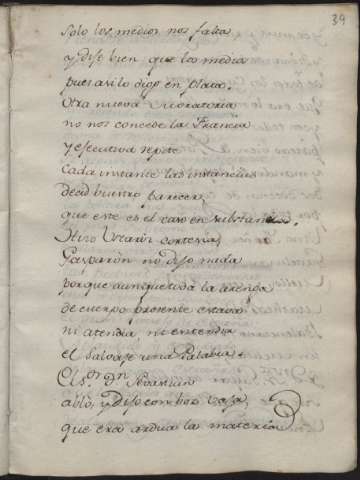 39
Solo los medios nos falta
y dise bien que los media
pues asi lo digo en plata.
Otra nueva
no nos concede la Francia
y esecutiva repite
Cada instante las instancias
decid buestro parecer
que este es el caso en substancia.
Hizo Utarin cortesia,
Gavaron no diso nada
Porque aunque toda la arenga
de cuerpo presente estaba
ni atendia, ni entendia
el Salvase una Palabra.
El S.or D.n Sevastian
abló, y Diso con boz vasa,
que era ardua la materia